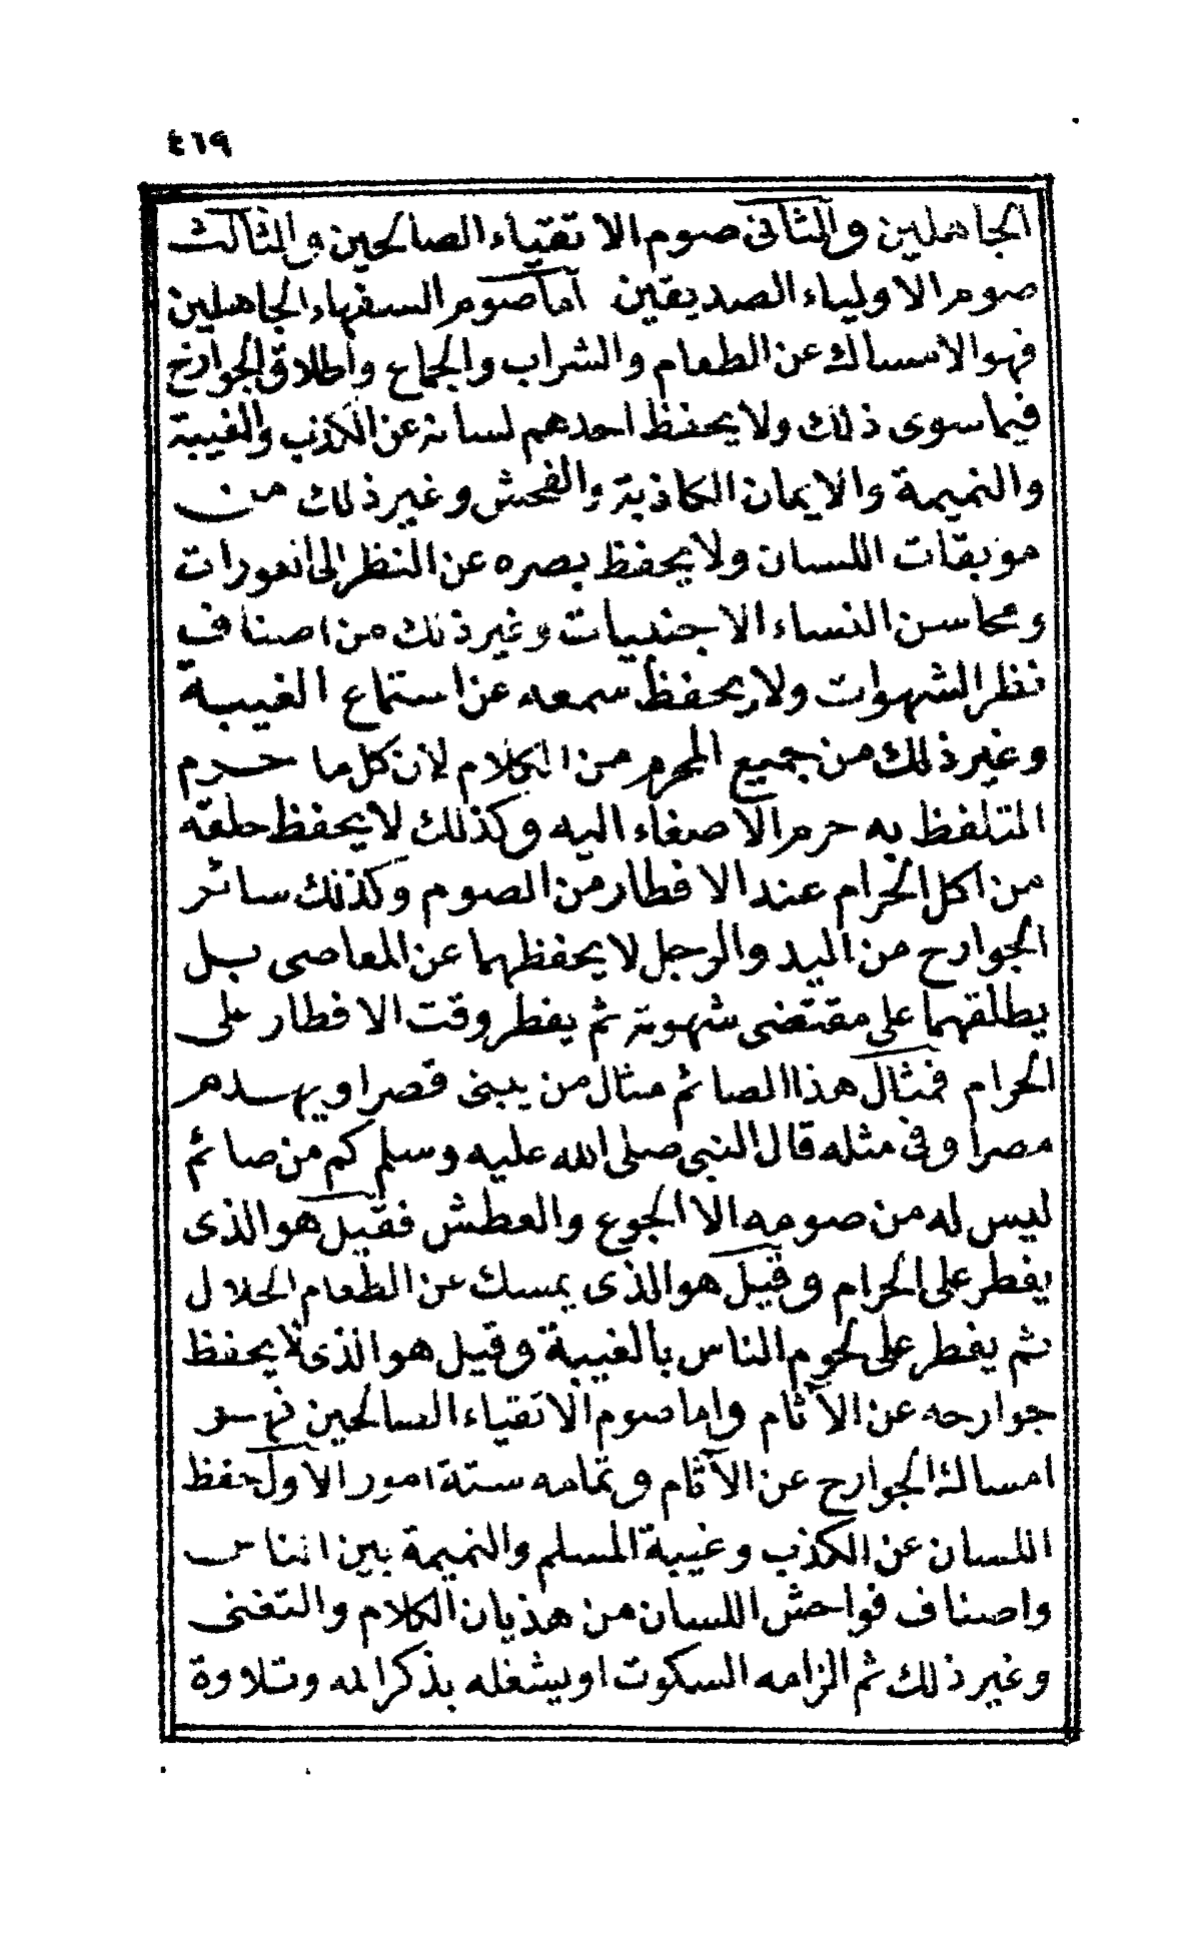 ٤٦٩
الجاهلين والثانى صوم الاتقياء الصالحين والثالث
صوم الاولياء الصديقين اما صوم السفهاء الجاهلين
فهو الامساك عن الطعام والشراب والجماع واطلاق الجوارح
فيما سوى ذلك ولا يحفظ احدهم لسانه عن الكذب والغيبة
والنميمة والايمان الكاذبة والفحش وغير ذلك من
موبقات اللسان ولا يحفظ بصره عن النظر الى العورات
ومحاسن النساء الاجنبيات وغير ذلك من اصناف
نظر الشهوات ولا يحفظ سمعه عن استماع الغيبة
وغير ذلك من جميع المحرم من الكلام لان كل ما حرم
التلفظ به حرم الاصغاء اليه وكذلك لا يحفظ حلقه
من اكل الحرام عند الافطار من الصوم وكذلك سائر
الجوارح من اليد والرجل لا يحفظهما عن المعاصى بل
يطلقهما على مقتضى شهوته ثم يفطر وقت الافطار على
الحرام فمثال هذا الصائم مثال من يبنى قصرا ويهدم
مصرا وفى مثله قال النبى صلى الله عليه وسلم كم من صائم
ليس له من صومه الا الجوع والعطش فقيل هو الذى
يفطر على الحرام وقيل هو الذى يمسك عن الطعام الحلال
ثم يفطر على لحوم الناس بالغيبة وقيل هو الذى لا يحفظ
جوارحه عن الآثام واما صوم الاتقياء الصالحين فهو
امساك الجوارح عن الآثام وتمامه ستة امور الاول حفظ
اللسان عن الكذب وغيبة المسلم والنميمة بين الناس
واصناف فواحش اللسان من هذيان الكلام والتغنى
وغير ذلك ثم الزامه السكوت او يشغله بذكر الله وتلاوة